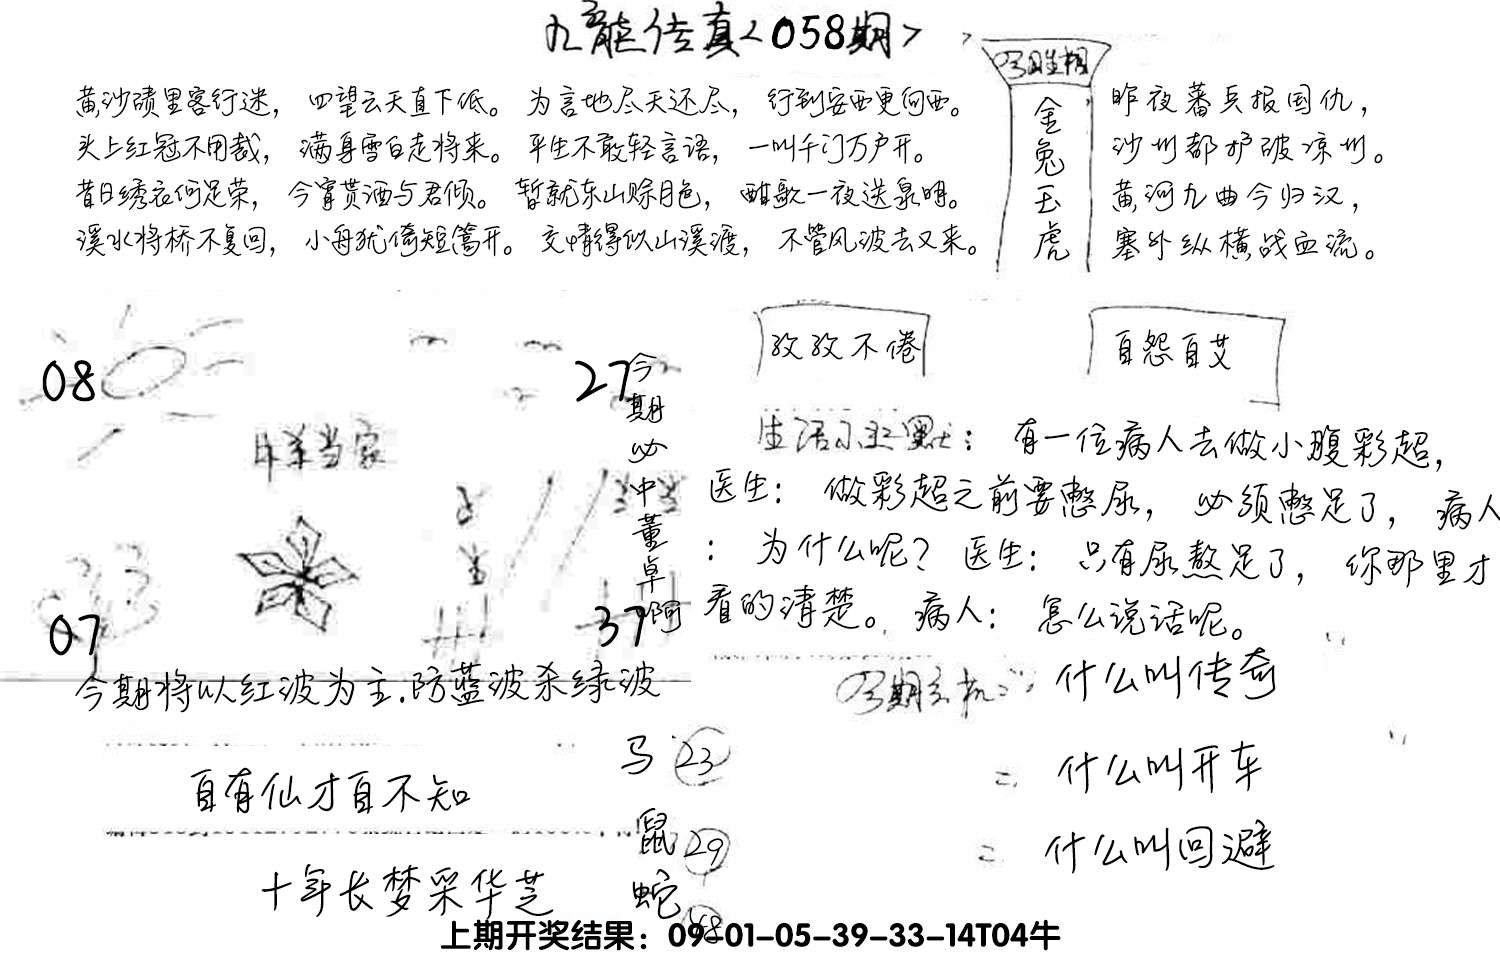 九龙传真<058期>
今期生相
金兔玉虎
黄沙碛里客行迷，四望云天直下低。为言地尽天还尽，行到安西更向西。
头上红冠不用裁，满身雪白走将来。平生不敢轻言语，一叫千门万户开。
昔日绣衣何足荣，今宵贳酒与君倾。暂就东山赊月色，酣歌一夜送泉明。
溪水将桥不复回，小舟犹倚短篙开。交情得似山溪渡，不管风波去又来。
昨夜蕃兵报国仇，
沙州都护破凉州。
黄河九曲今归汉，
塞外纵横战血流。
孜孜不倦
自怨自艾
08
27
07
37
今期必中董卓啊
生活小幽默：有一位病人去做小腹彩超，
医生：做彩超之前要憋尿，必须憋足了，病人
：为什么呢？医生：只有尿熬足了，你那里才
看的清楚。病人：怎么说话呢。
今期将以红波为主.防蓝波杀绿波
今期玄机：什么叫传奇
二 什么叫开车
二 什么叫回避
自有仙才自不知
十年长梦采华芝
马 23
鼠 29
蛇
上期开奖结果：09-01-05-39-33-14T04牛